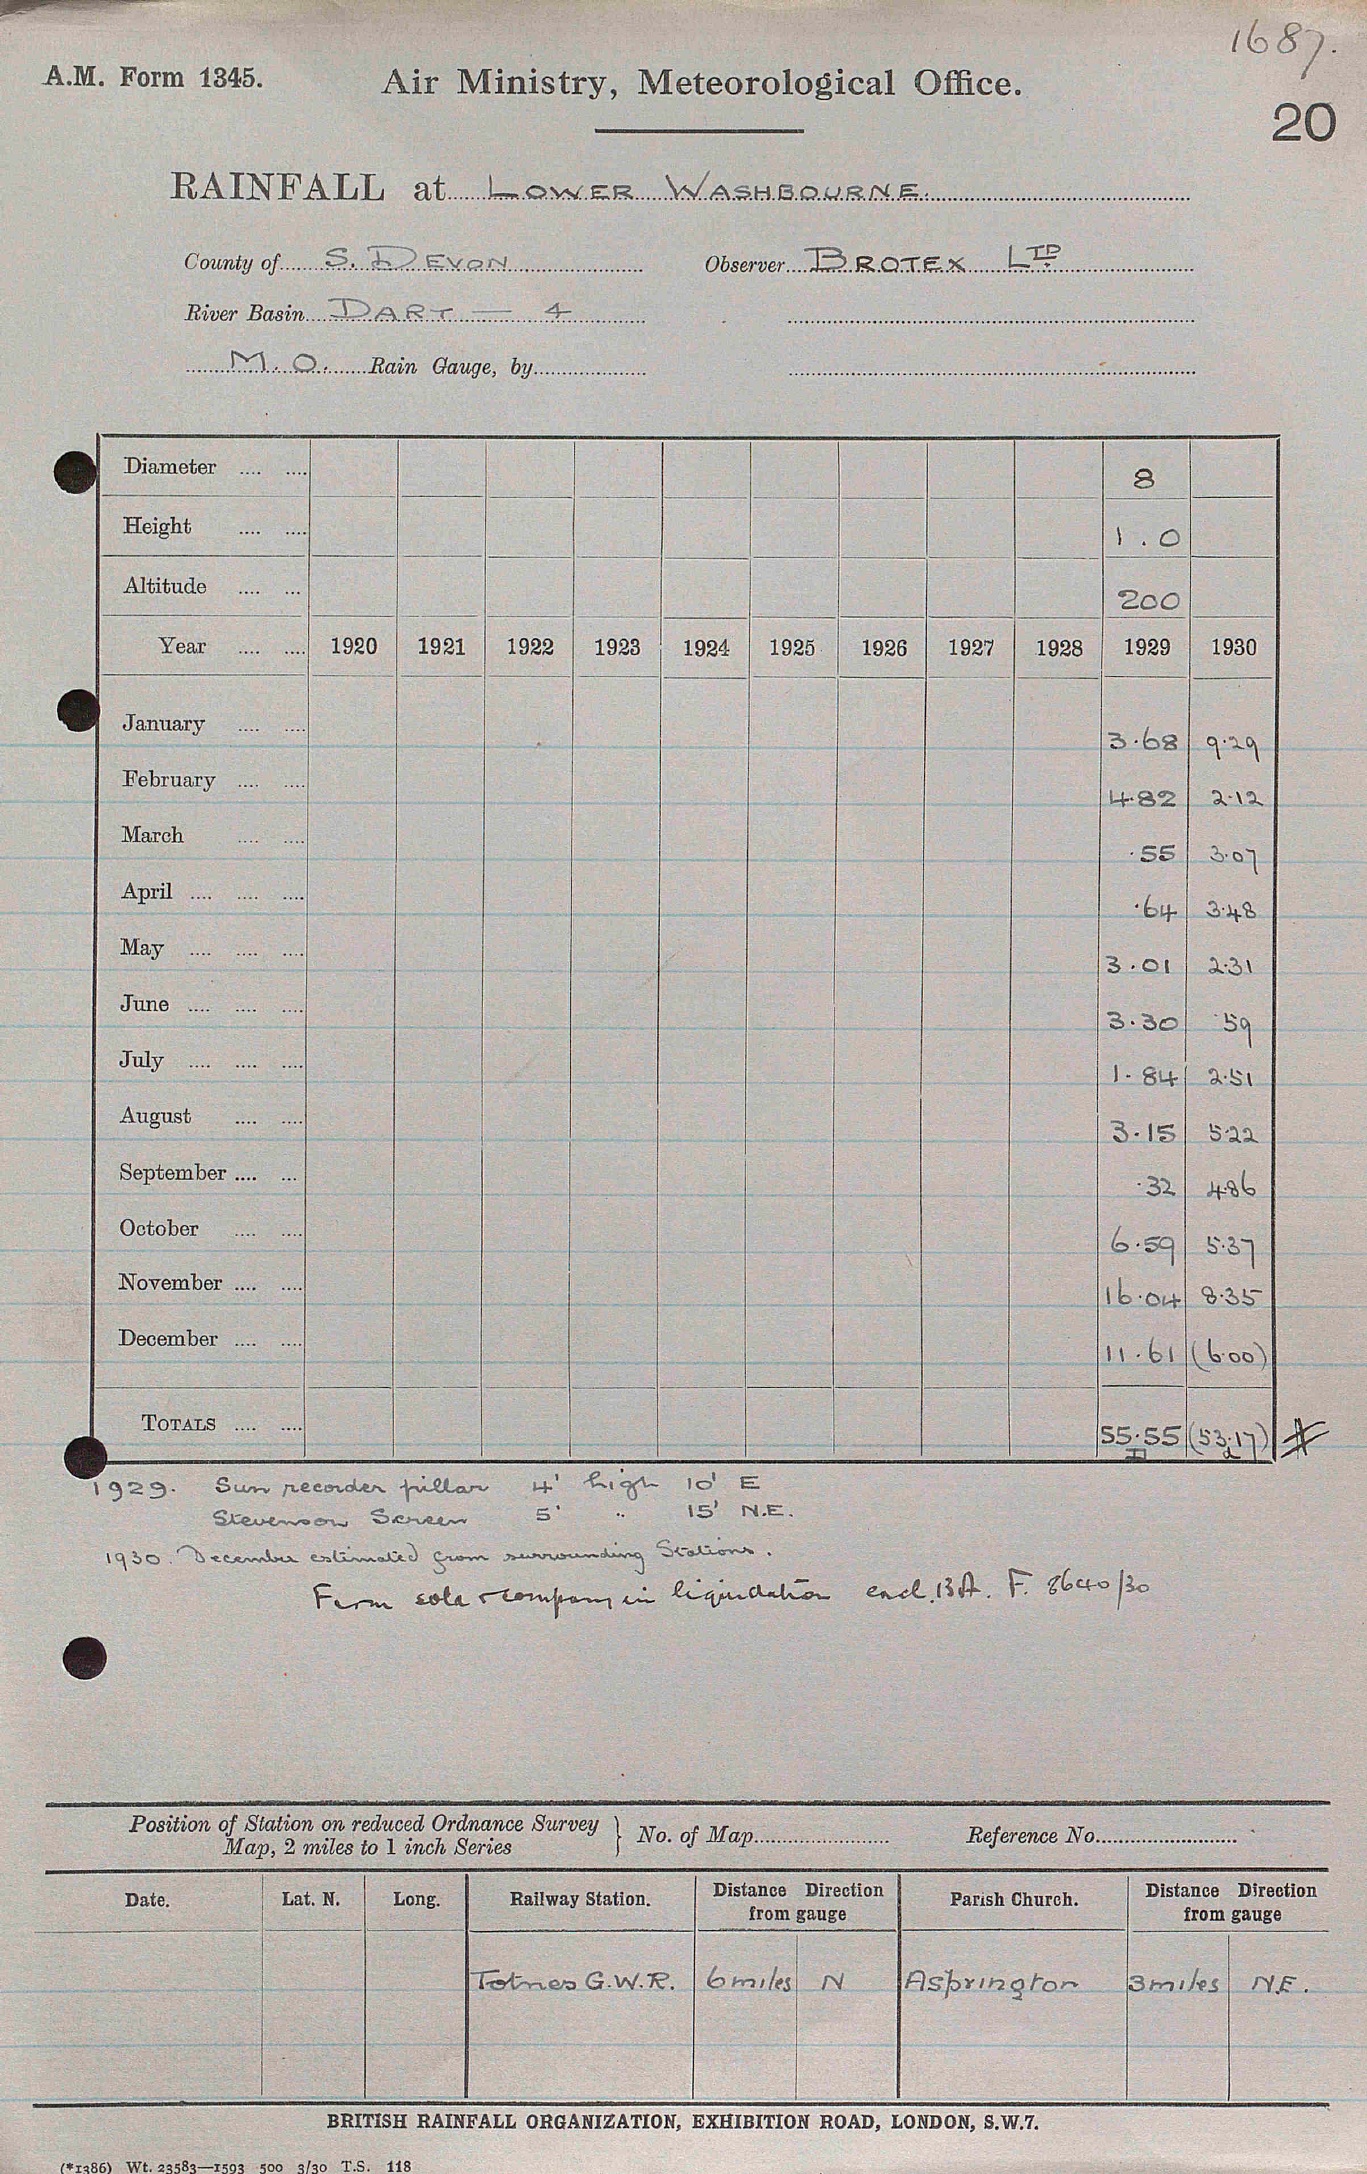 1687.
A.M. Form 1345. Air Ministry, Meteorological Office.
20
RAINFALL at LOWER WASHBOURNE.
County of S. DEVON Observer BROTEX LTD
River Basin DART — 4
M.O. Rain Gauge, by
Diameter 8
Height 1.0
Altitude 200
Year 1920 1921 1922 1923 1924 1925 1926 1927 1928 1929 1930
January 3.68 9.29
February 4.82 2.12
March .55 3.07
April .64 3.48
May 3.01 2.31
June 3.30 .59
July 1.84 2.51
August 3.15 5.22
September .32 4.86
October 6.59 5.37
November 16.04 8.35
December 11.61 (6.00)
TOTALS 55.55 (53.17)
1929. Sun recorder pillar 4' high 10' E
Stevenson Screen 5' " 15' N.E.
1930. December estimated from surrounding Stations.
Farm sold & company in liquidation encl. 13A. F. 8640/30
Position of Station on reduced Ordnance Survey
Map, 2 miles to 1 inch Series } No. of Map Reference No.
Date. Lat. N. Long. Railway Station. Distance Direction from gauge Parish Church. Distance Direction from gauge
Totnes G.W.R. 6 miles N Asprington 3 miles N.E.
BRITISH RAINFALL ORGANIZATION, EXHIBITION ROAD, LONDON, S.W.7.
(*1386) Wt. 23583—1593 500 3/30 T.S. 118